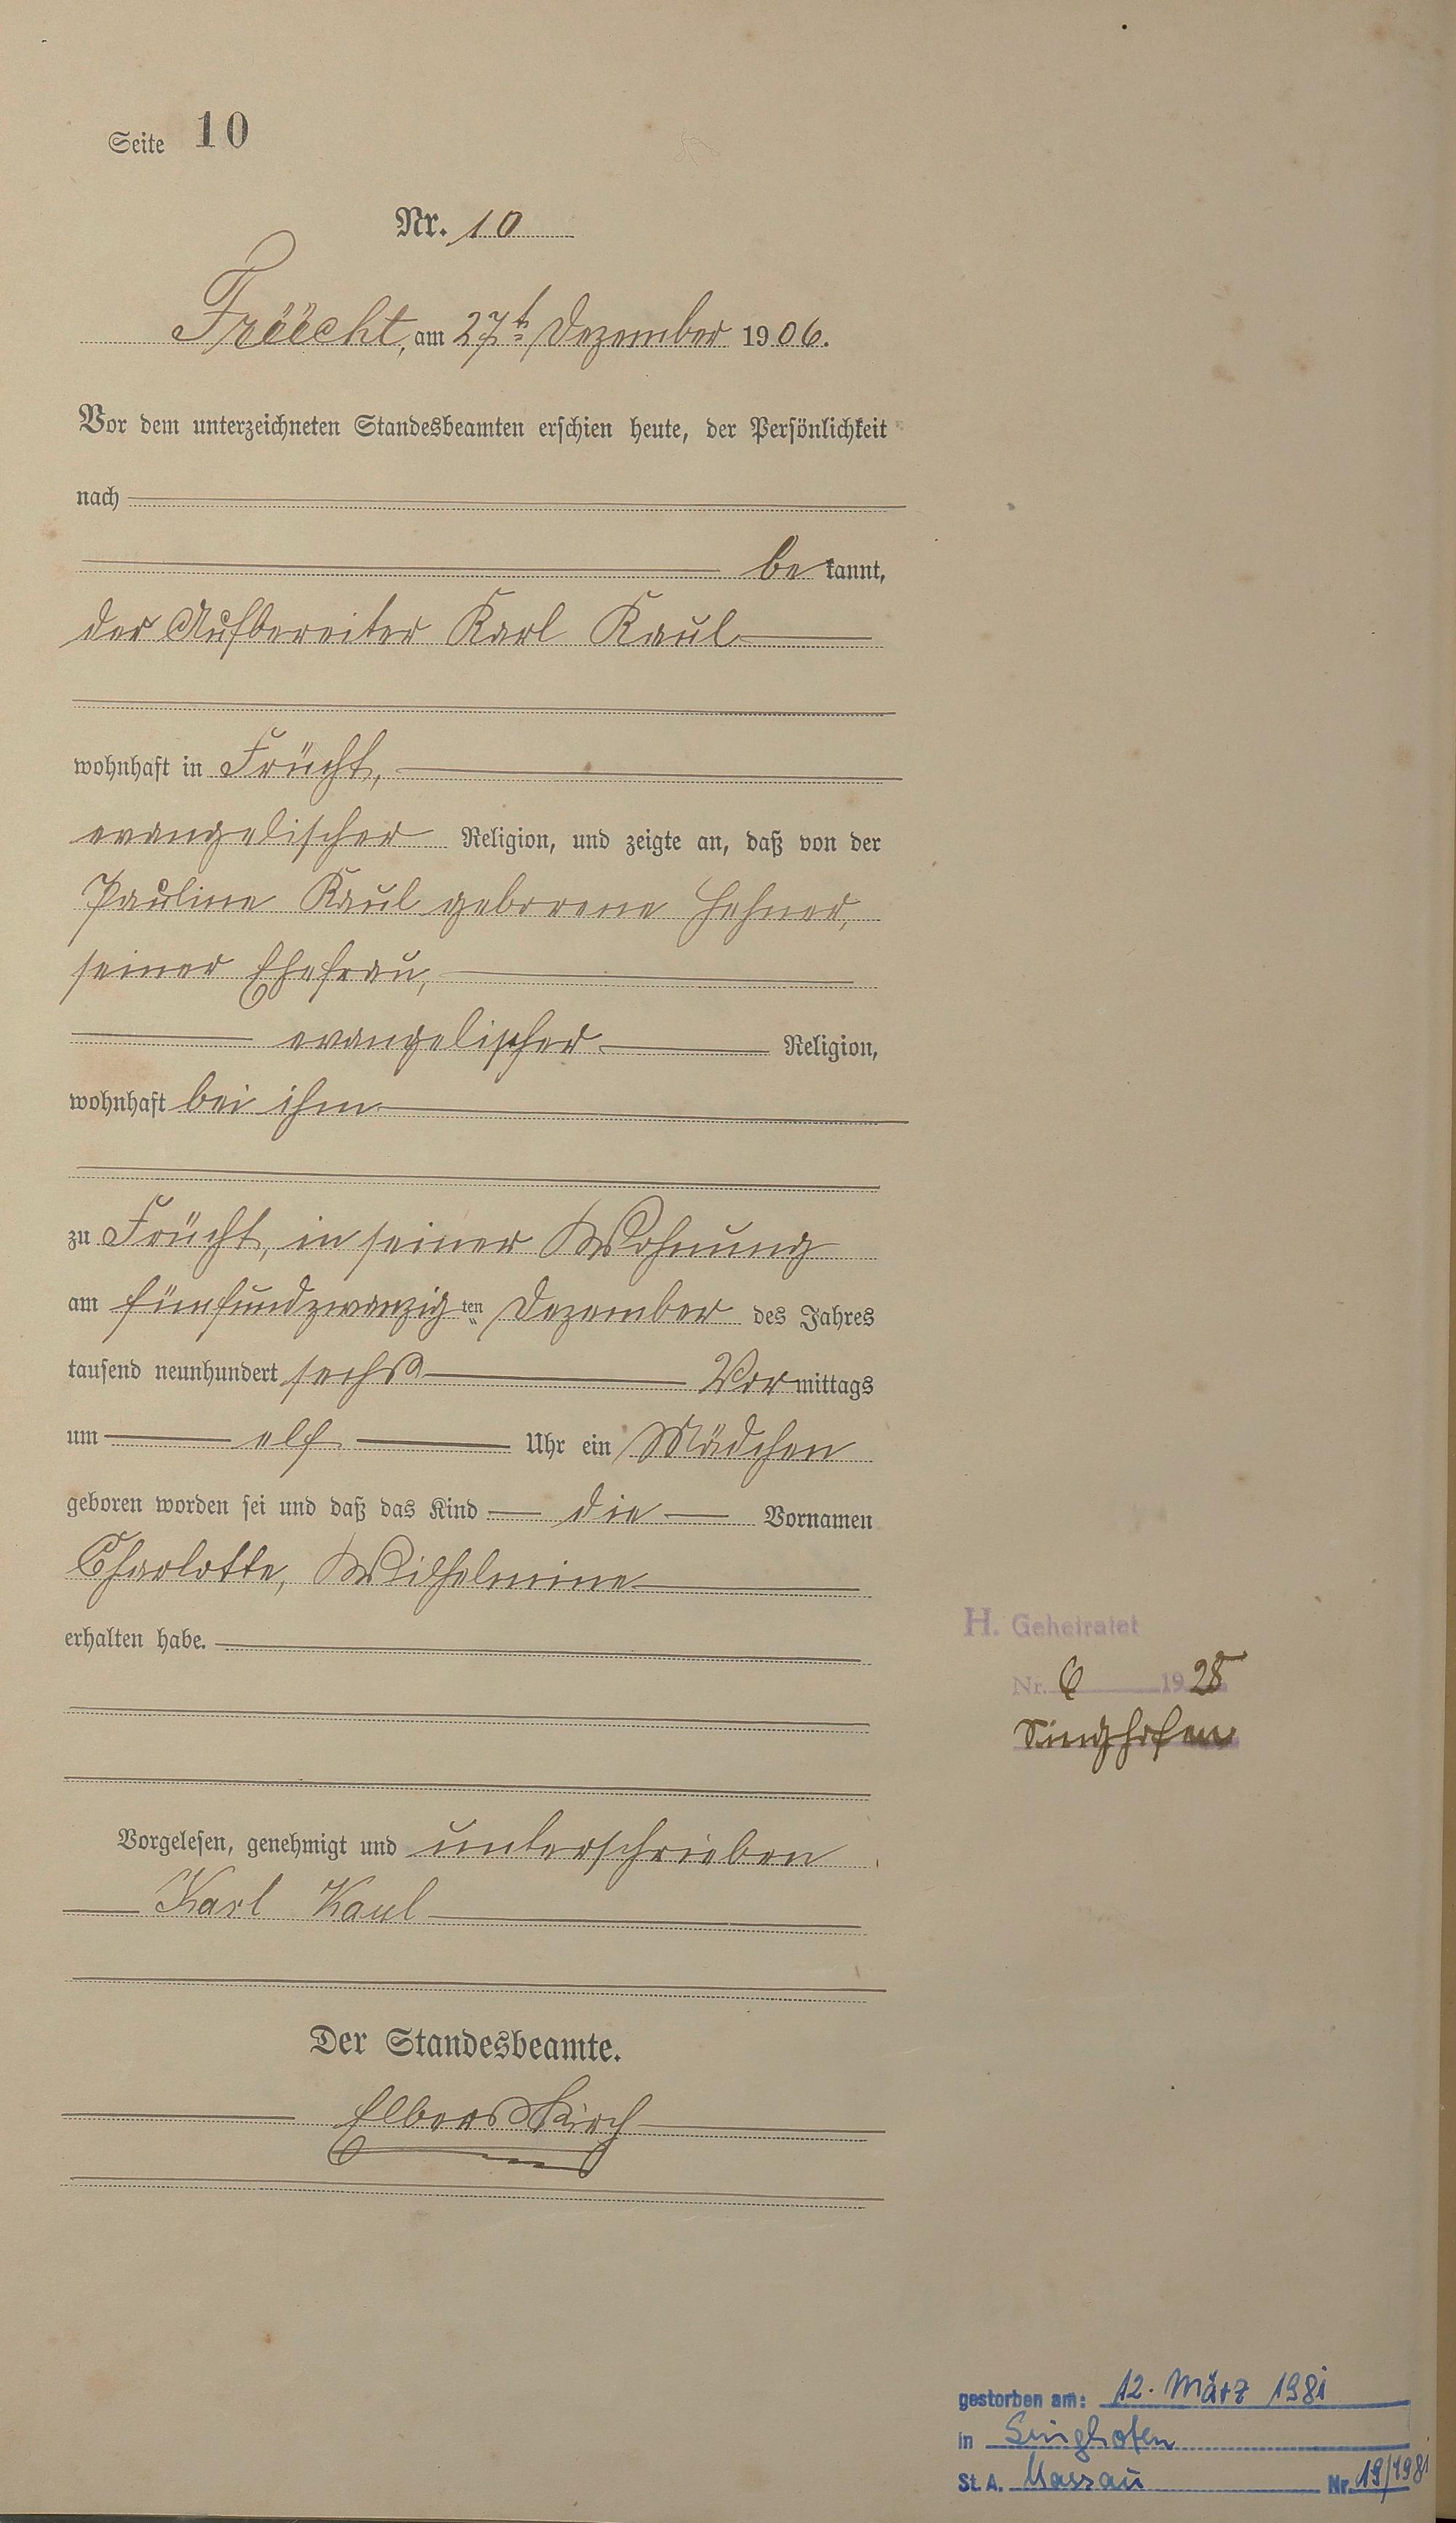 Seite 10
Nr. 10
Früecht, am 27ten Dezember 1906.
Vor dem unterzeichneten Standesbeamten erschien heute, der Persönlichkeit
nach
be kannt,
der Aufbereiter Karl Kaul
wohnhaft in Frücht,
evangelischer Religion, und zeigte an, daß von der
Pauline Kaul geborene Hehner,
seiner Ehefrau,
evangelischer Religion,
wohnhaft bei ihm
zu Frücht, in seiner Wohnung
am fünfundzwanzig ten Dezember des Jahres
tausend neunhundert sechs Vormittags
um elf Uhr ein Mädchen
geboren worden sei und daß das Kind die Vornamen
Charlotte, Wilhelmine
erhalten habe.
H. Geheiratet
Nr. 6 1928
Singhofen
Vorgelesen, genehmigt und unterschrieben
Karl Kaul
Der Standesbeamte.
Elberskirch
gestorben am: 12. März 1981
in Singhofen
St. A. Nassau Nr. 19/1981